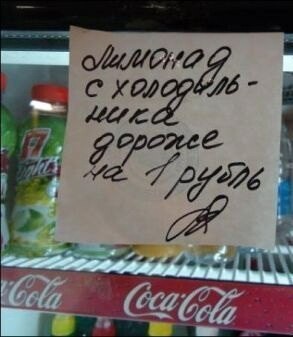 Лимонад
с холодиль-
ника
дороже
на 1 рубль
Coca-Cola
Coca-Cola